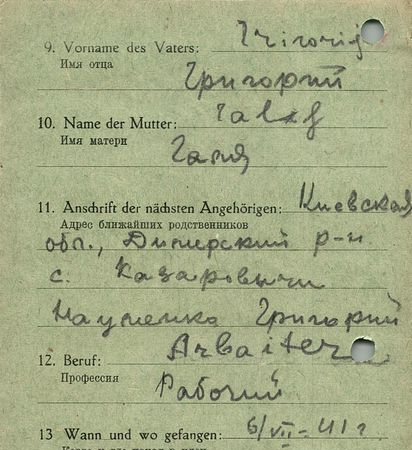 9. Vorname des Vaters: Grigorij
Имя отца
Григорий
10. Name der Mutter:
Имя матери
Галя
11. Anschrift der nächsten Angehörigen: Киевская
Адрес ближайших родственников
обл., Димерский р-н
с. Казаровичи
Науменко Григорий
12. Beruf: Arbaiter
Профессия
Рабочий
13 Wann und wo gefangen: 6/VII-41 г.